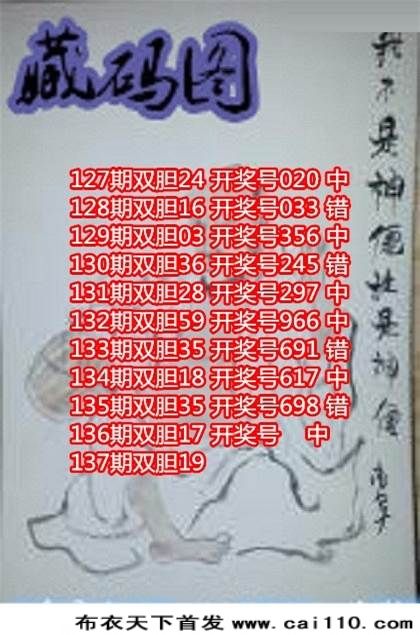 藏码图
127期双胆24 开奖号020 中
128期双胆16 开奖号033 错
129期双胆03 开奖号356 中
130期双胆36 开奖号245 错
131期双胆28 开奖号297 中
132期双胆59 开奖号966 中
133期双胆35 开奖号691 错
134期双胆18 开奖号617 中
135期双胆35 开奖号698 错
136期双胆17 开奖号 中
137期双胆19
布衣天下首发 www.cai110.com